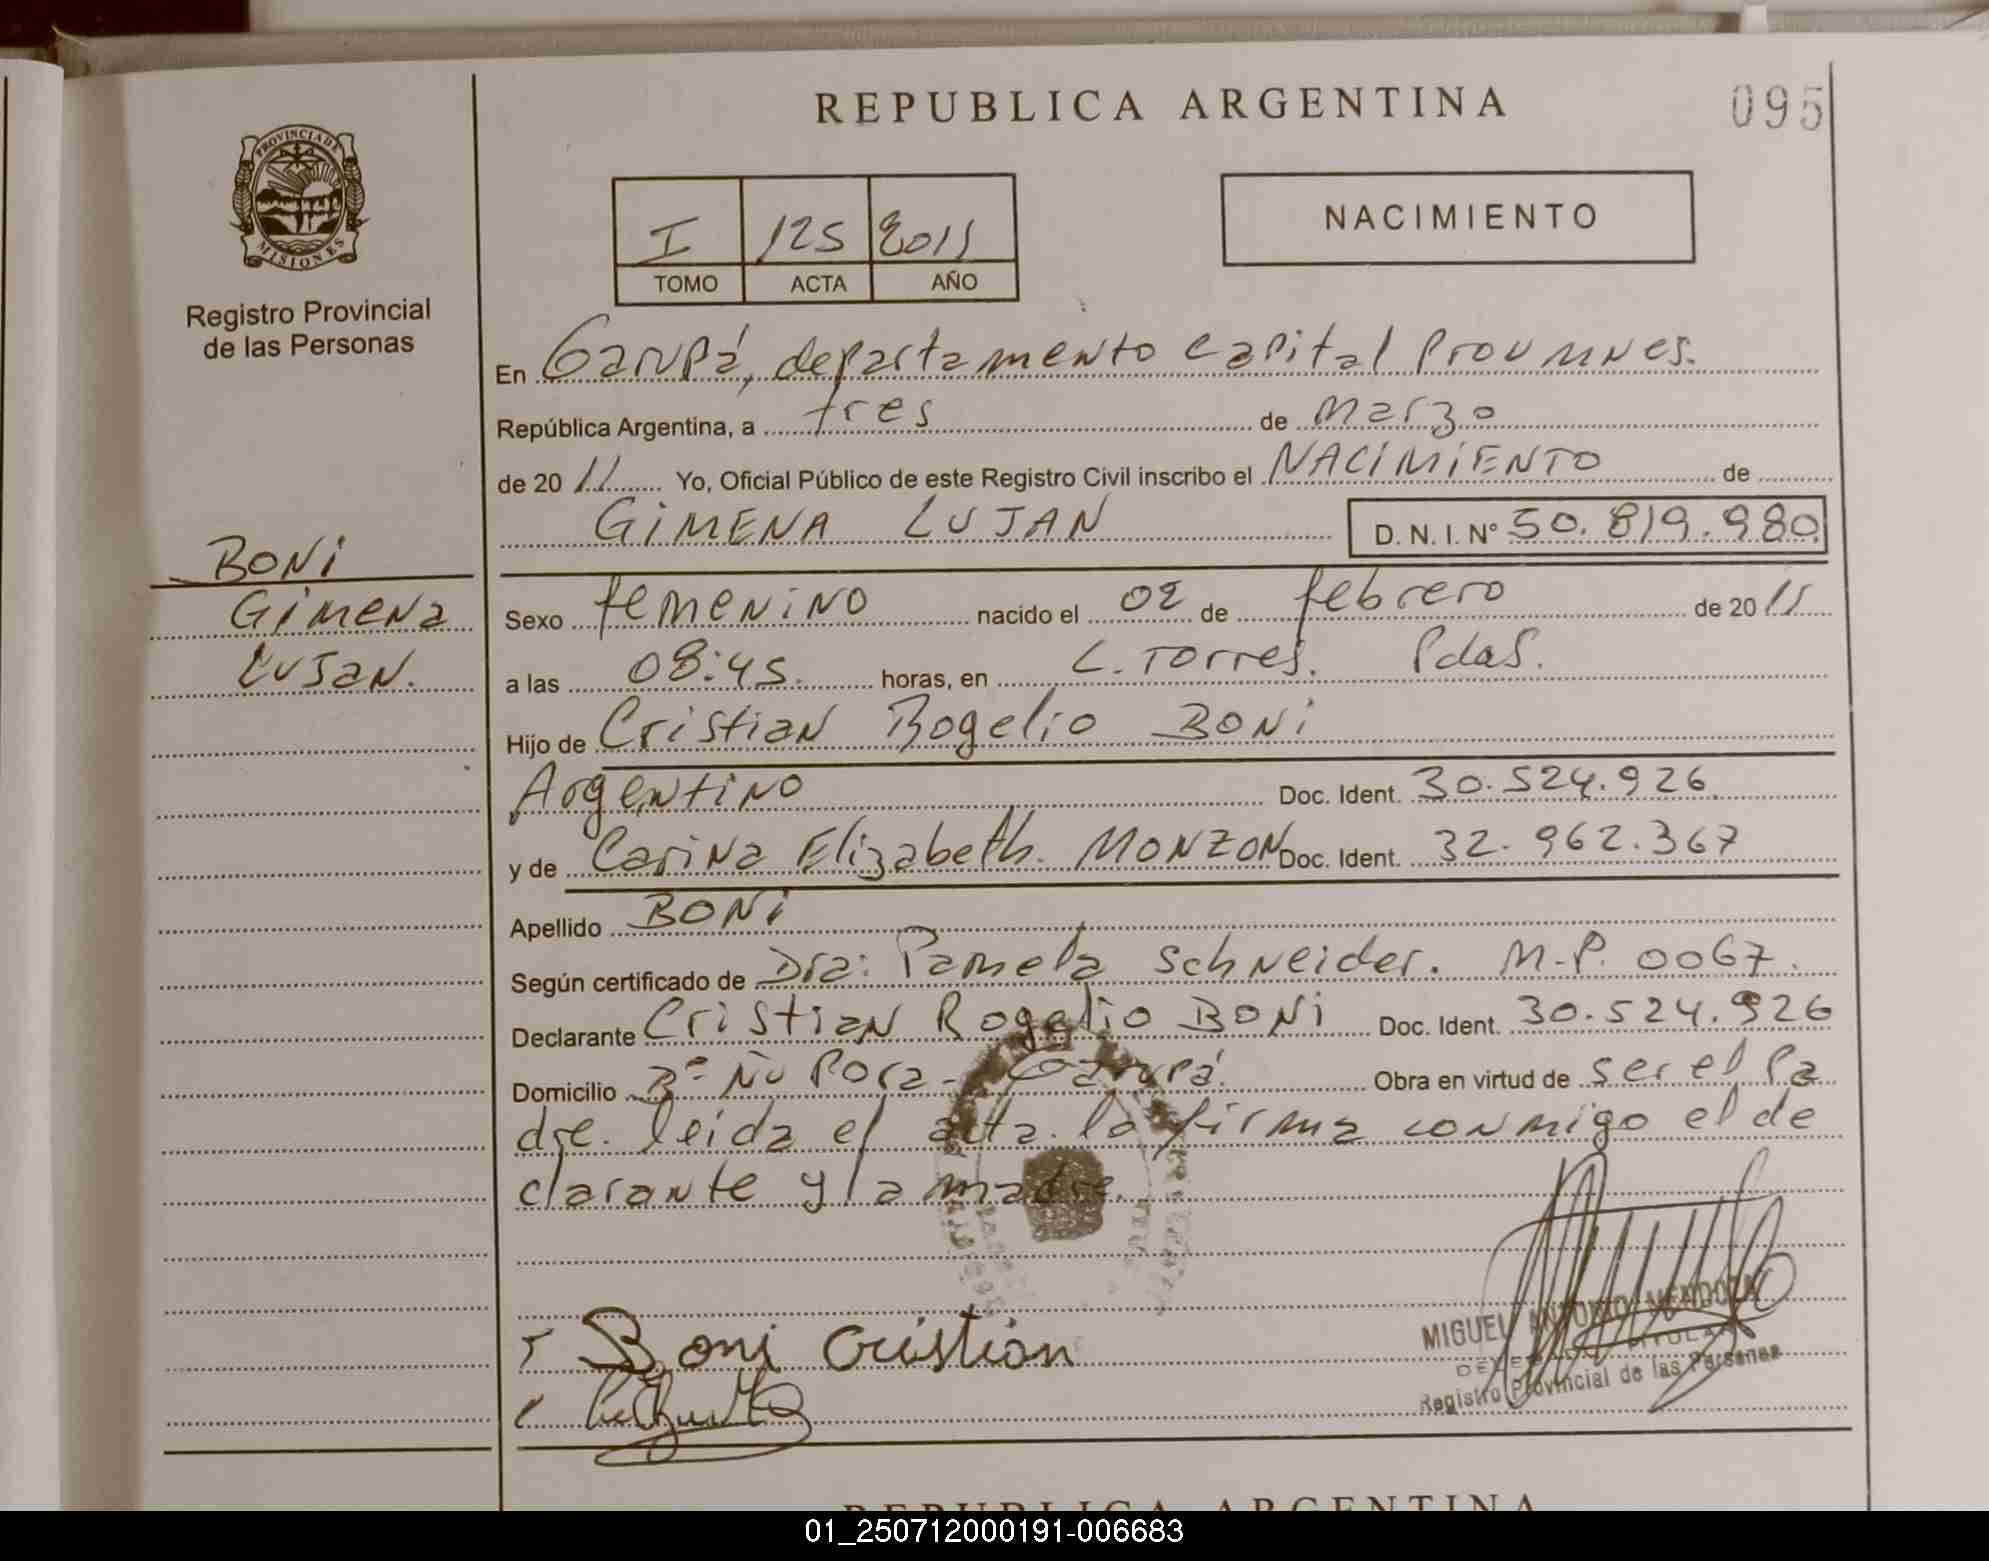 REPUBLICA ARGENTINA
095
PROVINCIA DE
MISIONES
Registro Provincial
de las Personas
I 125 2011
TOMO ACTA AÑO
NACIMIENTO
En Garupá, departamento capital Prov Mnes.
República Argentina, a tres de Marzo
de 20 11 Yo, Oficial Público de este Registro Civil inscribo el NACIMIENTO de
GIMENA LUJAN D. N. I. Nº 50.819.980
BONI
GIMENA
LUJAN.
Sexo femenino nacido el 02 de febrero de 20 11
a las 08:45. horas, en L. Torres. Pdas.
Hijo de Cristian Rogelio BONI
Argentino Doc. Ident. 30.524.926
y de Carina Elizabeth. MONZON Doc. Ident. 32.962.367
Apellido BONI
Según certificado de Dra: Pamela Schneider. M.P. 0067.
Declarante Cristian Rogelio BONI Doc. Ident. 30.524.926
Domicilio Bº Ñu Pora - Garupá. Obra en virtud de ser el Pa
dre. leida el acta. la firma conmigo el de
clarante y la madre.
Boni Cristian
MIGUEL ANTONIO MENDOZA
TITULAR
Registro Provincial de las Personas
REPUBLICA ARGENTINA
01_250712000191-006683